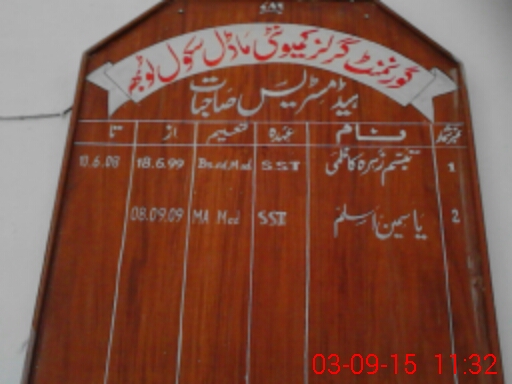 ۷۸۶
گورنمنٹ گرلز کمیونٹی ماڈل سکول
ہیڈ مسٹریس صاحبات
نمبر شمار نام عہدہ تعلیم از تا
1 تبسم زہرہ کاظمی S.S.T Bsc.Med 18.6.99 10.6.08
2 یاسمین اسلم SST MA Med 08.09.09
03-09-15 11:32